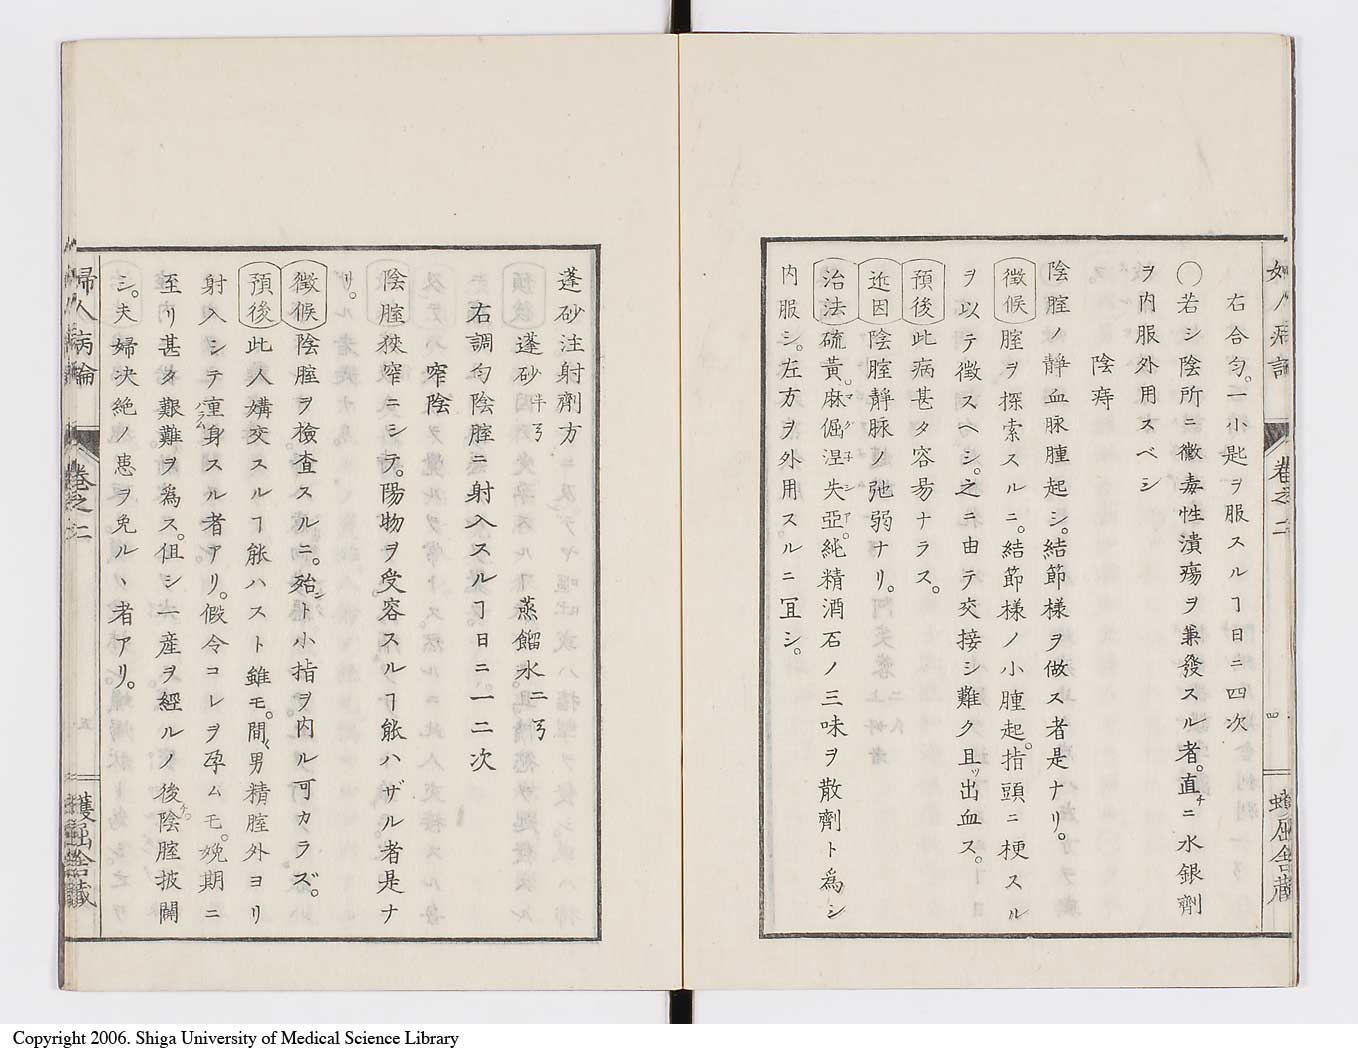 右合匀。一小匙ヲ服スルヿ日ニ四次
〇若シ陰所ニ黴毒性潰瘍ヲ兼發スル者。直チニ水銀劑
ヲ内服外用スベシ
陰痔
陰腟ノ靜血脉腫起シ。結節樣ヲ做ス者是ナリ。
徴候 腟ヲ探索スルニ。結節樣ノ小腫起。指頭ニ梗スル
ヲ以テ徴スヘシ。之ニ由テ交接シ難ク且ツ出血ス。
預後 此病甚タ容昜ナラス。
近因 陰腟靜脉ノ弛弱ナリ。
治法 硫黃。麻倔涅失亞。純精酒石ノ三味ヲ散劑ト為シ
内服シ。左方ヲ外用スルニ冝シ。
四
卷之二
蠖屈舍藏
蓬砂注射劑方
蓬砂 半ゟ 蒸餾水 二ゟ
右調匀陰腟ニ射入スルヿ日ニ一二次
窄陰
陰腟狹窄ニシテ。陽物ヲ受容スルヿ能ハザル者是ナ
リ。
徴候 陰腟ヲ檢査スルニ。殆ント小指ヲ内ル可カラズ。
預後 此人媾交スルヿ能ハスト雖モ。間〻男精腟外ヨリ
射入シテ重身スル者アリ。假令コレヲ孕ムモ。娩期ニ
至リ甚タ艱難ヲ為ス。但シ一産ヲ經ルノ後チ。陰腟披開
シ。夫婦決絶ノ患ヲ免ルヽ者アリ。
婦人病論
卷之二
五
蠖屈舍藏
Copyright 2006. Shiga University of Medical Science Library